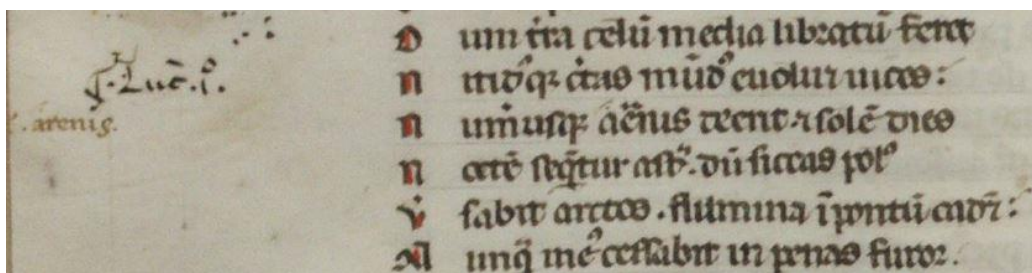 D um t̾ra celū media libratū feret
n itid⁹q; c̾tas mūd⁹ euoluit uices :
.arenis.
n um̾usq; aēnus deerit ⁊ solē dies
n octē seq̄ntur astᵃ. dū siccas pol⁹
v̾ sabit arctos . flumina ī pontū cadēt :
N unq̄ me⁹ cessabit in penas furor .